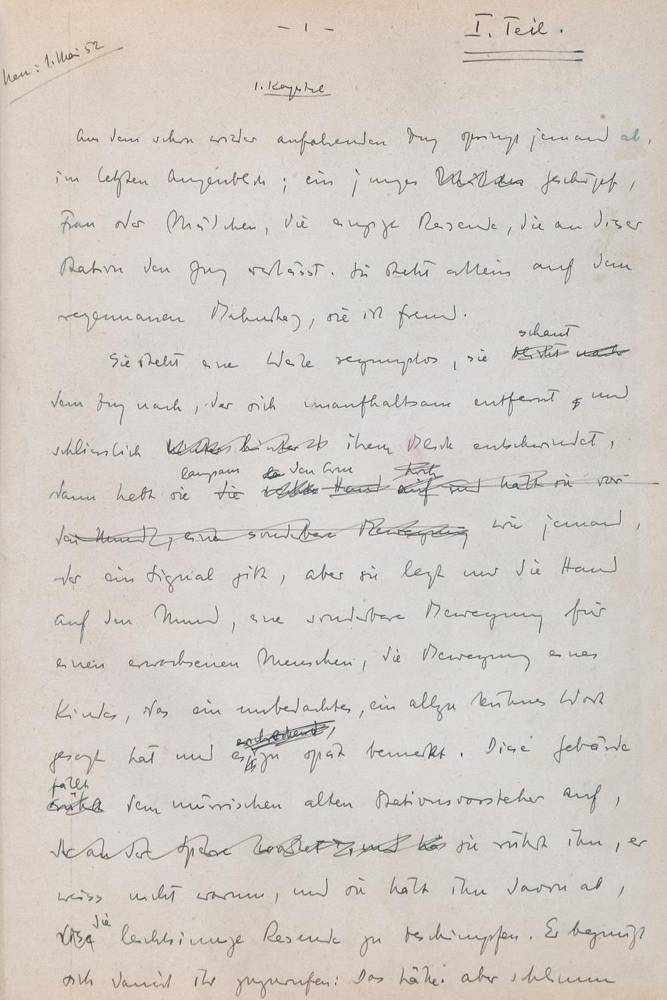 - 1 -
I. Teil.
neu: 1. Mai 52
1. Kapitel
Aus dem schon wieder anfahrenden Zug springt jemand ab,
im letzten Augenblick; ein junges Geschöpf,
Frau oder Mädchen, die einzige Reisende, die an dieser
Station den Zug verlässt. Sie steht allein auf dem
regennassen Bahnsteig, sie ist fremd.
Sie steht eine Weile regungslos, sie schaut
dem Zug nach, der sich unaufhaltsam entfernt und
schliesslich ihrem Blick entschwindet,
dann hebt sie langsam den Arm
wie jemand,
der ein Signal gibt, aber sie legt nur die Hand
auf den Mund, eine sonderbare Bewegung für
einen erwachsenen Menschen, die Bewegung eines
Kindes, das ein unbedachtes, ein allzu kühnes Wort
gesagt hat und es zu spät bemerkt. Diese Gebärde
fällt dem mürrischen alten Stationsvorsteher auf,
sie rührt ihn, er
weiss nicht warum, und sie hält ihn davon ab,
die leichtsinnige Reisende zu beschimpfen. Er begnügt
sich damit ihr zuzurufen: Das hätte aber schlimm